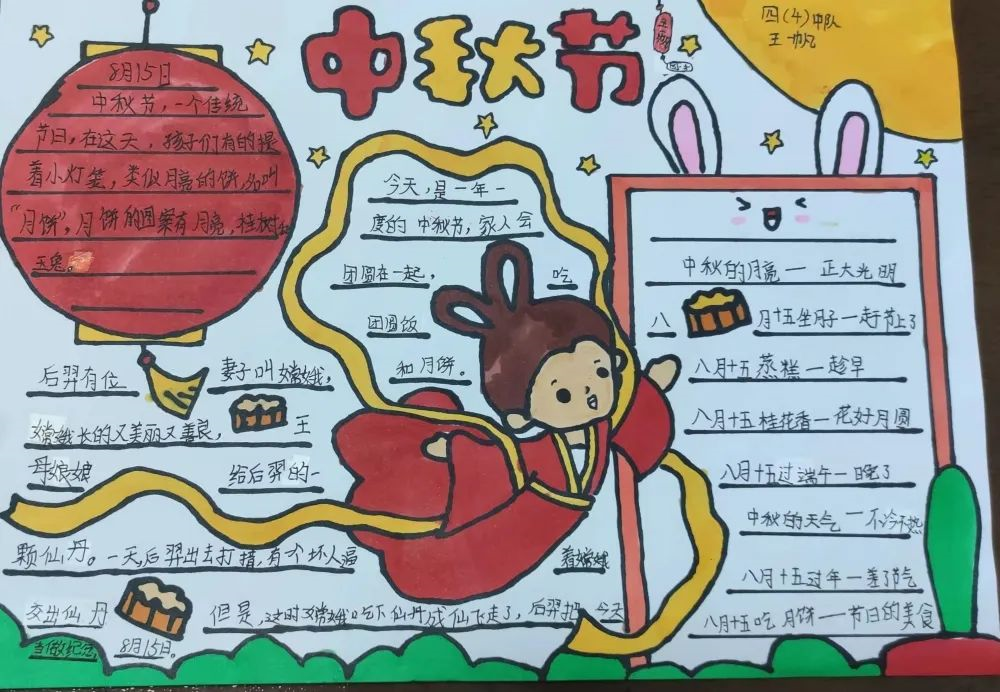 中秋节
四(4)中队
王一帆
8月15日
中秋节，一个传统
节日，在这天，孩子们有的提
着小灯笼，类似月亮的饼，名叫
“月饼”，月饼的图案有月亮，桂树
玉兔。
今天，是一年一
度的中秋节，家人会
团圆在一起， 吃
团圆饭
和月饼。
后羿有位 妻子叫嫦娥，
嫦娥长的又美丽又善良， 王
母娘娘 给后羿的一
颗仙丹。一天后羿出去打措，有个坏人逼 着嫦娥
交出仙丹 但是，这时嫦娥吃下仙丹成仙飞走了，后羿把 今天
当做纪念， 8月15日。
中秋的月亮一 正大光明
八 月十五坐月子一赶节上了
八月十五蒸糕一趁早
八月十五桂花香一花好月圆
八月十五过端午一晚了
中秋的天气一不冷不热
八月十五过年一差了节气
八月十五吃月饼一节日的美食